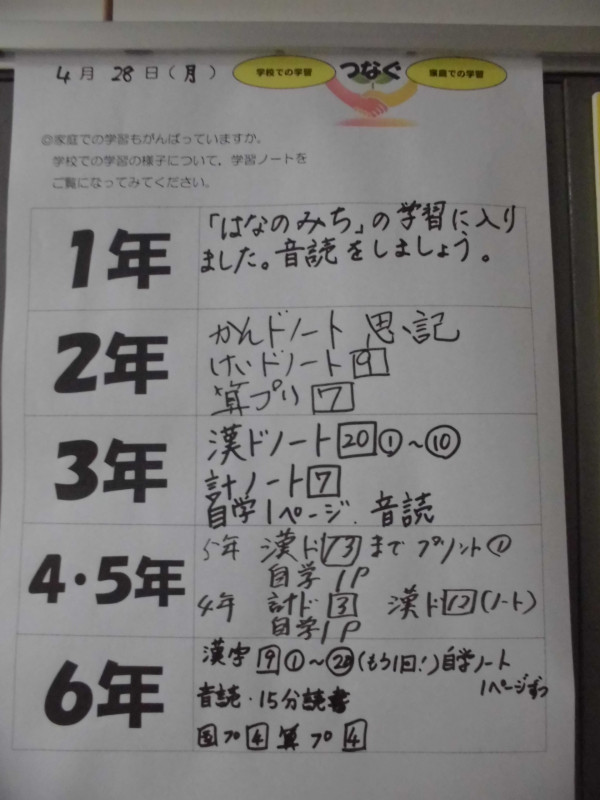 4月28日(月)
学校での学習
つなぐ
家庭での学習
◎家庭での学習もがんばっていますか。
学校での学習の様子について、学習ノートを
ご覧になってみてください。
1年
「はなのみち」の学習に入り
ました。音読をしましょう。
2年
かんドノート 思・記
けいドノート 9
算プリ 7
3年
漢ドノート 20 ①～⑩
計ノート 7
自学1ページ. 音読
4・5年
5年 漢ド 13 まで プリント①
自学1P
4年 計ド 3 漢ド 12 (ノート)
自学1P
6年
漢字 9 ①～⑳(もう1回!)自学ノート
1ページずつ
音読・15分読書
国プ 4 算プ 4